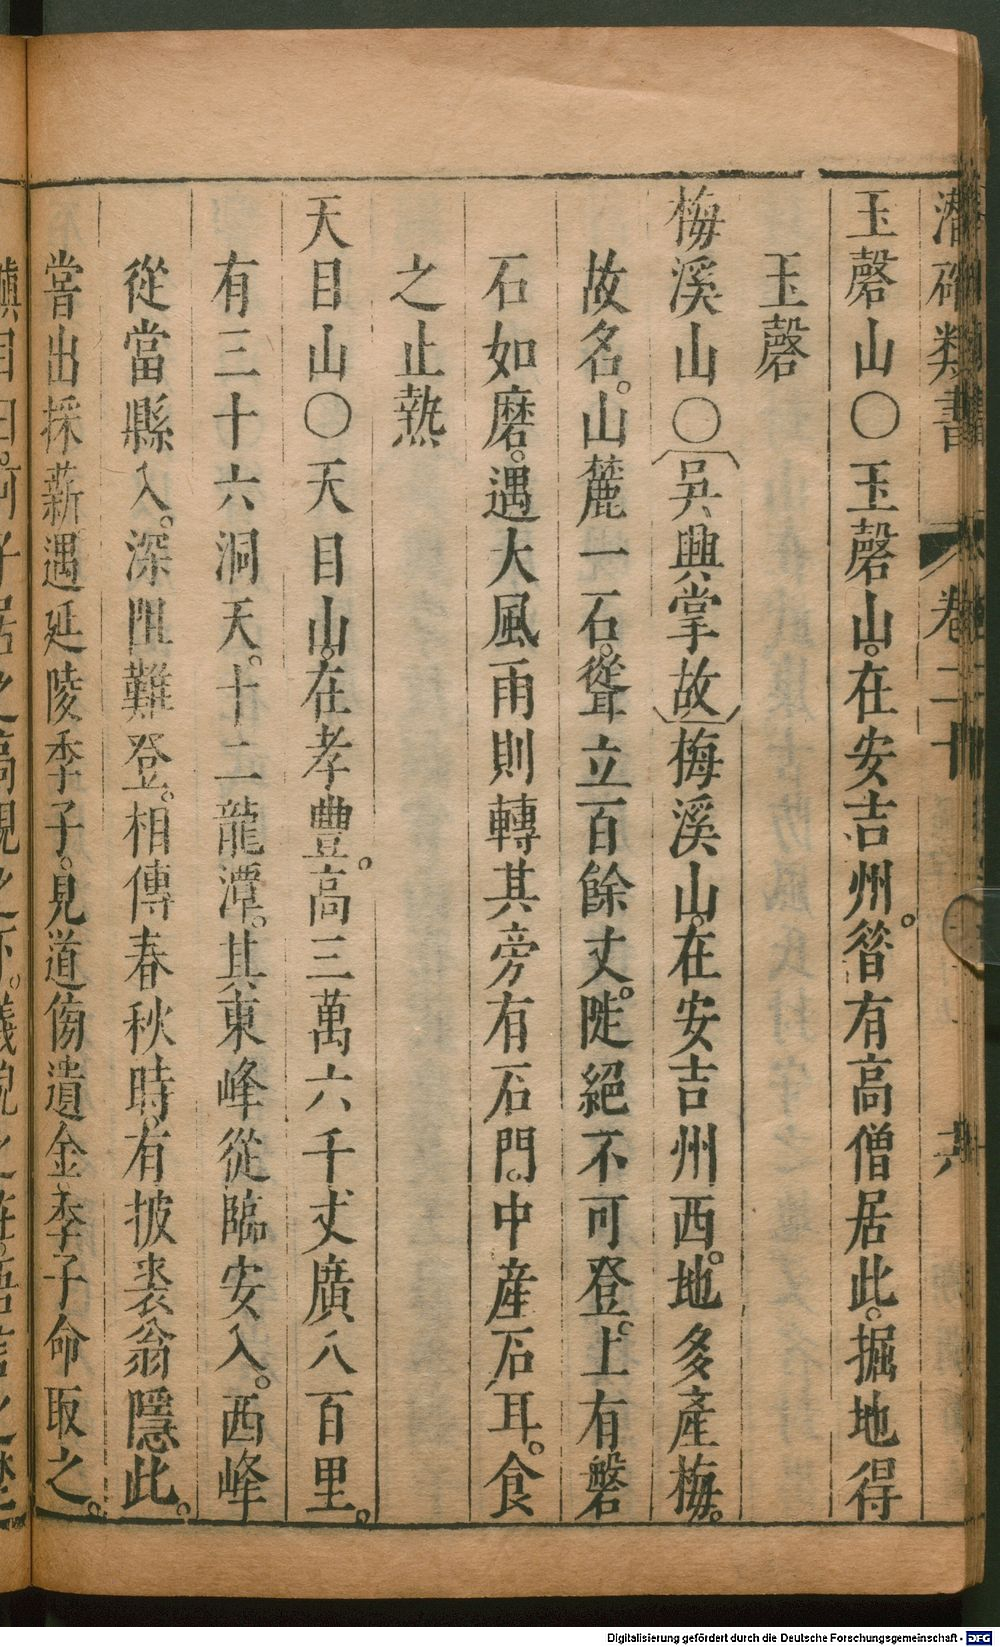 潛確類書 卷二十 共
玉磬山○玉磬山。在安吉州。昝有高僧居此。掘地得
玉磬
梅溪山○吳興掌故梅溪山。在安吉州西。地多產梅。
故名。山麓一石。聳立百餘丈。陡絕不可登。上有磐
石如磨。遇大風雨則轉其旁有石門。中産石耳。食
之止熱
天目山○天目山。在孝豊。高三萬六千丈廣八百里。
有三十六洞天。十二龍潭。其東峰從臨安入。西峰
從當縣入。深阻難登。相傳春秋時。有披裘翁隱此。
嘗出採薪遇延陵季子。見道傍遺金季子命取之。
Digitalisierung gefördert durch die Deutsche Forschungsgemeinschaft - DFG